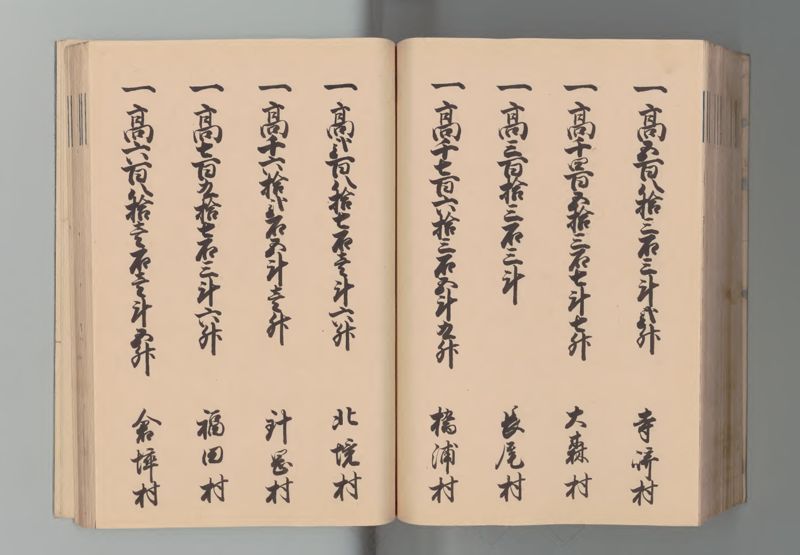 一高五百八拾三石三斗弐升 寺崎村
一高千四百五拾三石七斗七升 大森村
一高三百拾三石三斗 長尾村
一高千七百六拾三石五斗九升 橋浦村
一高弐百八拾七石壱斗六升 北境村
一高千六拾弐石五斗壱升 針岡村
一高七百九拾七石三斗六升 福田村
一高六百八拾壱石壱斗五升 倉埣村